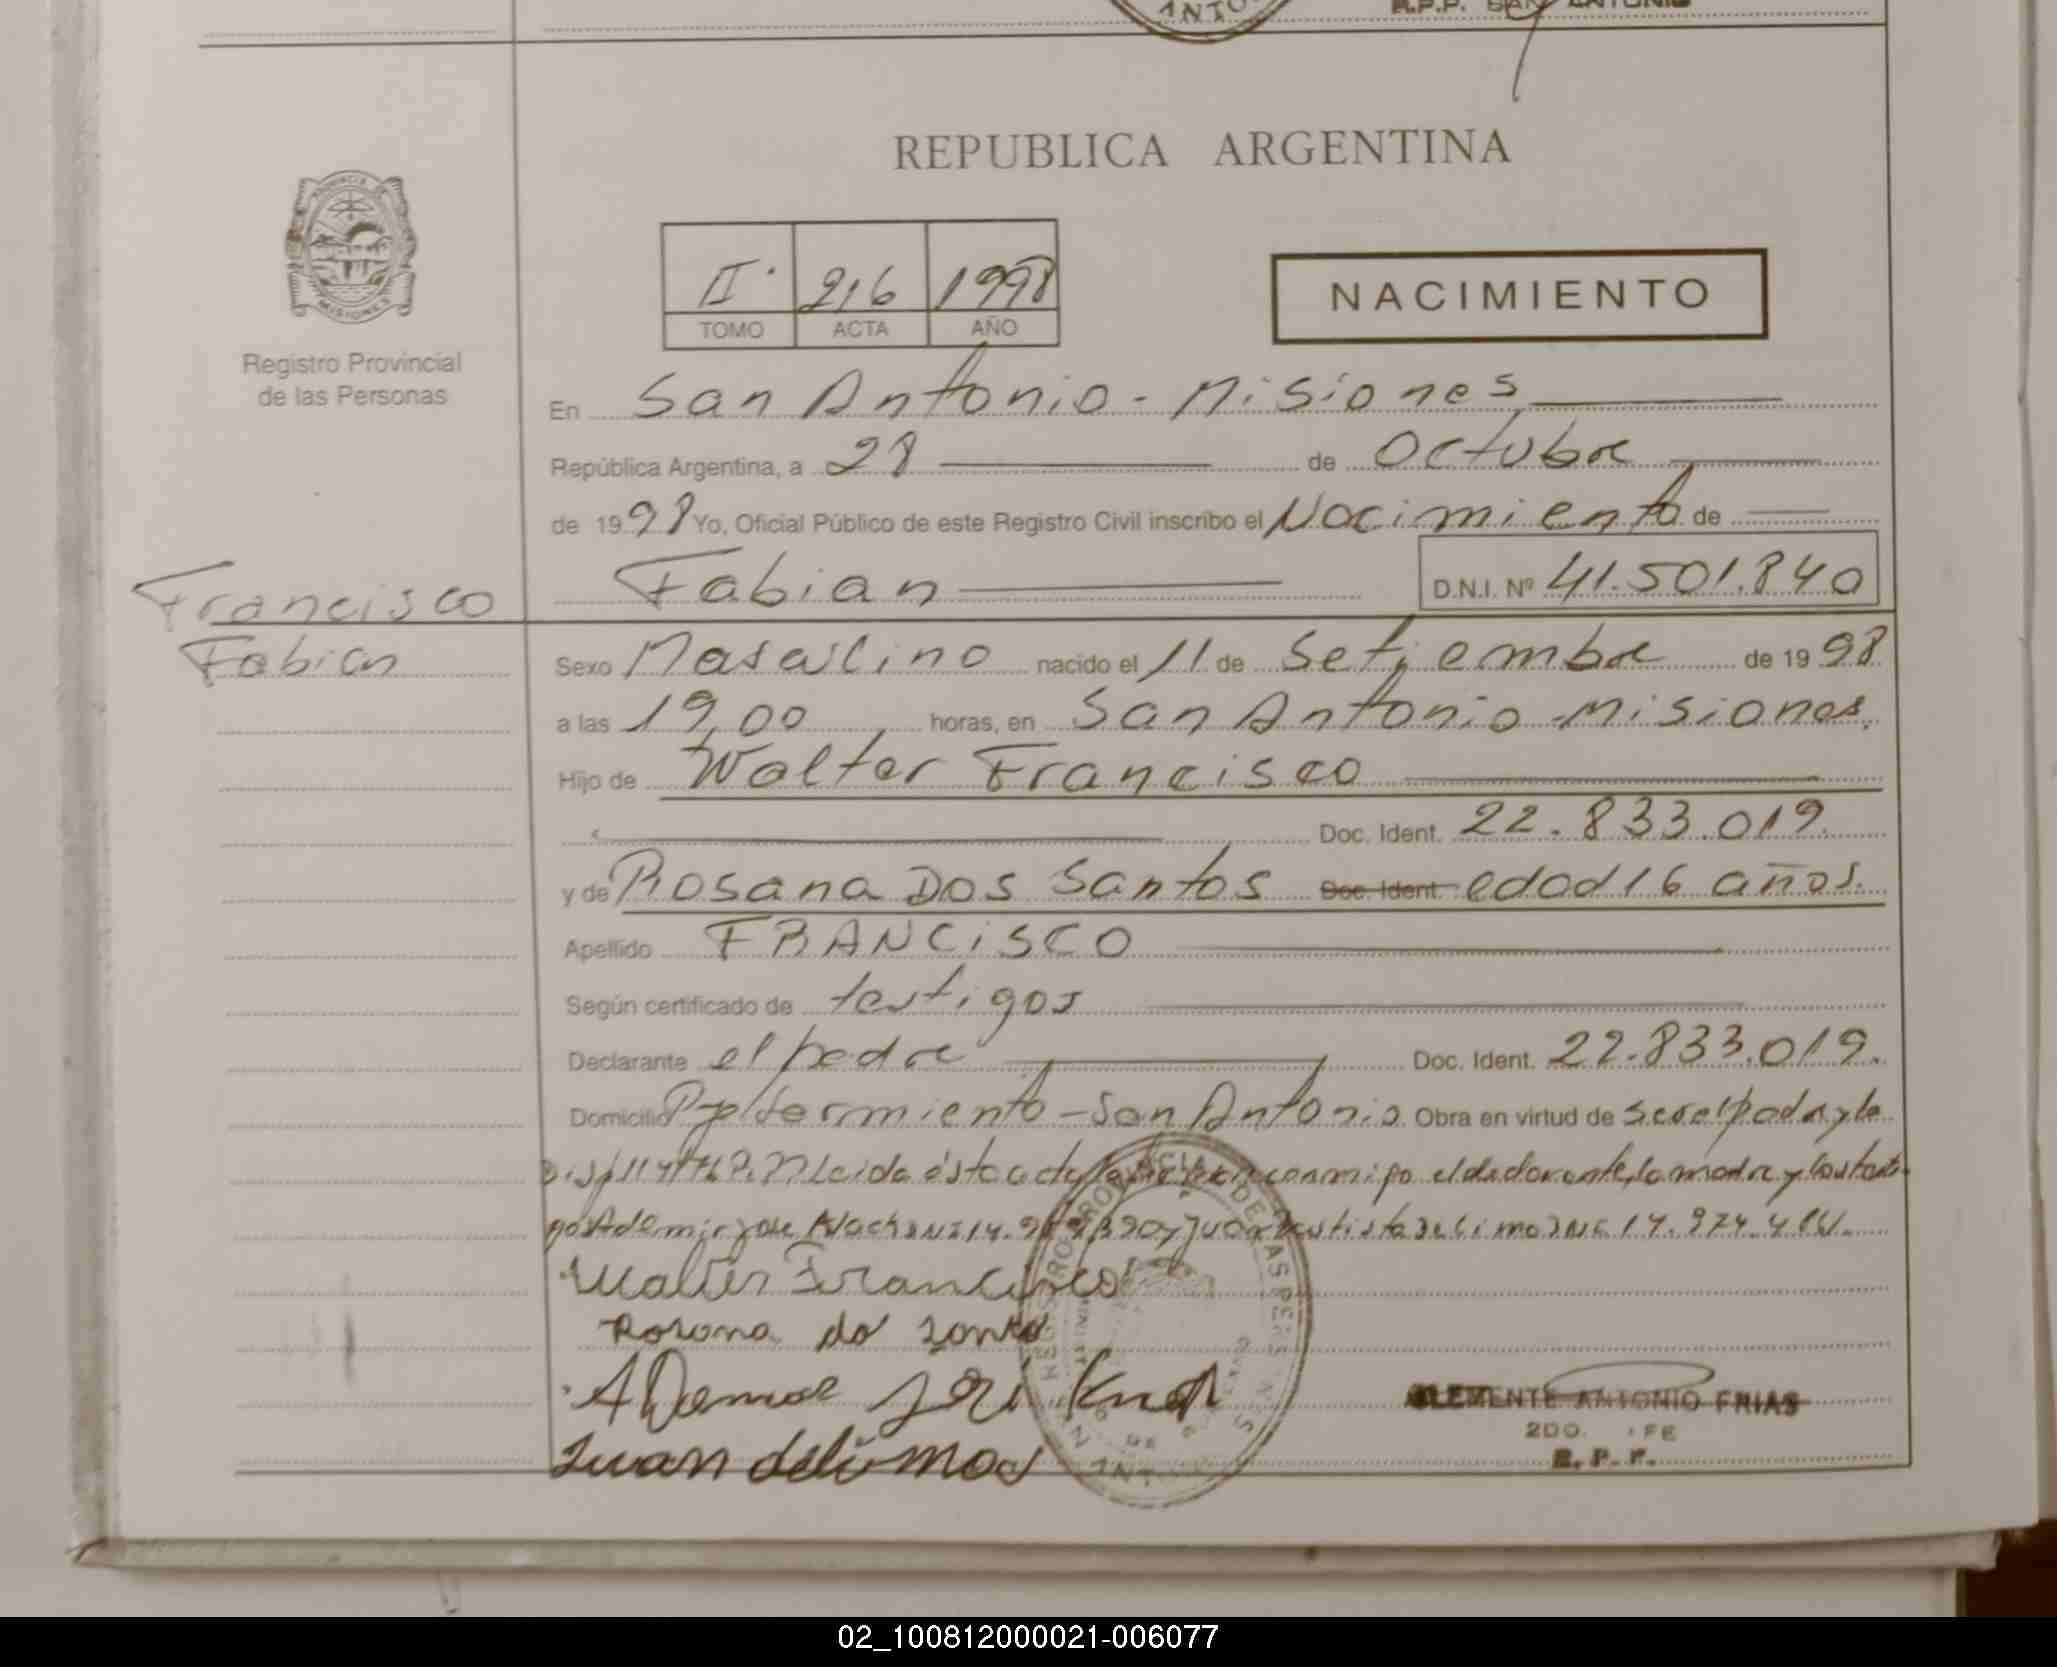 ANTO
R.P.P. SAN ANTONIO
REPUBLICA ARGENTINA
PROVINCIA DE
MISIONES
Registro Provincial
de las Personas
II· 216 1998
TOMO ACTA AÑO
NACIMIENTO
En San Antonio - Misiones
República Argentina, a 28 de Octubre
de 1998 Yo, Oficial Público de este Registro Civil inscribo el Nacimiento de
Fabian D.N.I. Nº 41.501.840
Francisco
Fabian
Sexo Masculino nacido el 11 de Setiembre de 1998
a las 19,00 horas, en San Antonio - Misiones.
Hijo de Walter Francisco
Doc. Ident. 22.833.019
y de Rosana Dos Santos Doc. Ident. edad 16 años.
Apellido FRANCISCO
Según certificado de testigos
Declarante el padre Doc. Ident. 22.833.019.
Domicilio San Antonio Obra en virtud de ser el padre y la
Leida ésta acta conmigo el declarante, la madre y los testi
gos Ademir Jose y Juan
Walter Francisco
Rosana do Santo
Ademar José
Juan delimos
CLEMENTE ANTONIO FRIAS
2DO. FE
R. P. P.
02_100812000021-006077